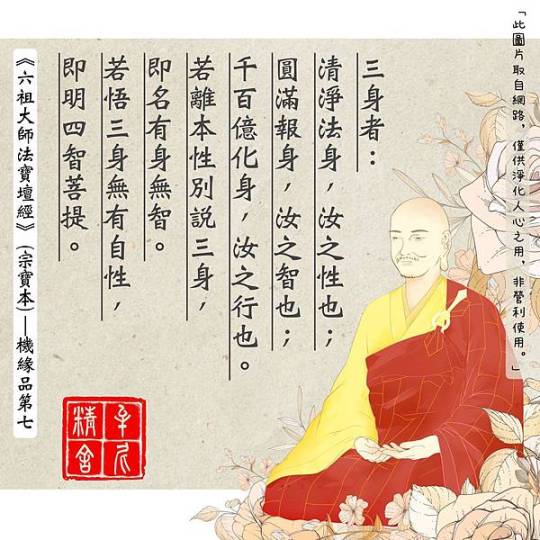 「此圖片取自網路，僅供淨化人心之用，非營利使用。」
三身者：
清淨法身，汝之性也；
圓滿報身，汝之智也；
千百億化身，汝之行也。
若離本性別說三身，
即名有身無智。
若悟三身無有自性，
即明四智菩提。
《六祖大師法寶壇經》(宗寶本)—機緣品第七
精舍